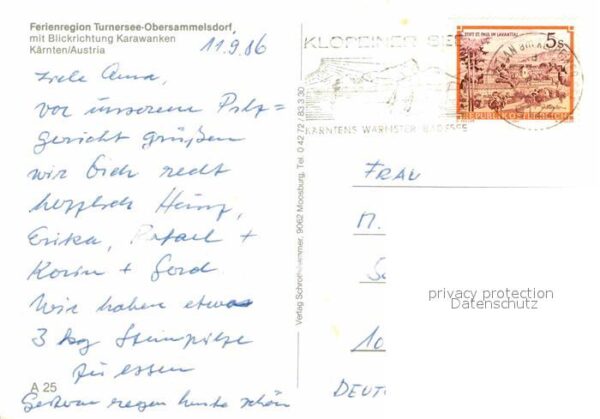 Ferienregion Turnersee-Obersammelsdorf,
mit Blickrichtung Karawanken
Kärnten/Austria
11.9.86
Liebe Anna,
vor unserem Pilz=
gericht grüßen
wir Dich recht
herzlich Heinz,
Erika, Rafael +
Karin + Gerd.
Wir haben etwas
3 kg Steinpilze
zu essen
Gestern regen heute schön
A 25
Verlag Schrottshammer, 9062 Moosburg, Tel. 0 42 72 / 83 3 30
KLOPEINER SEE
KÄRNTENS WÄRMSTER BADESEE
STIFT ST. PAUL IM LAVANTTAL
5s
REPUBLIK ÖSTERREICH
FRAU
M.
10
DEUT
privacy protection
Datenschutz